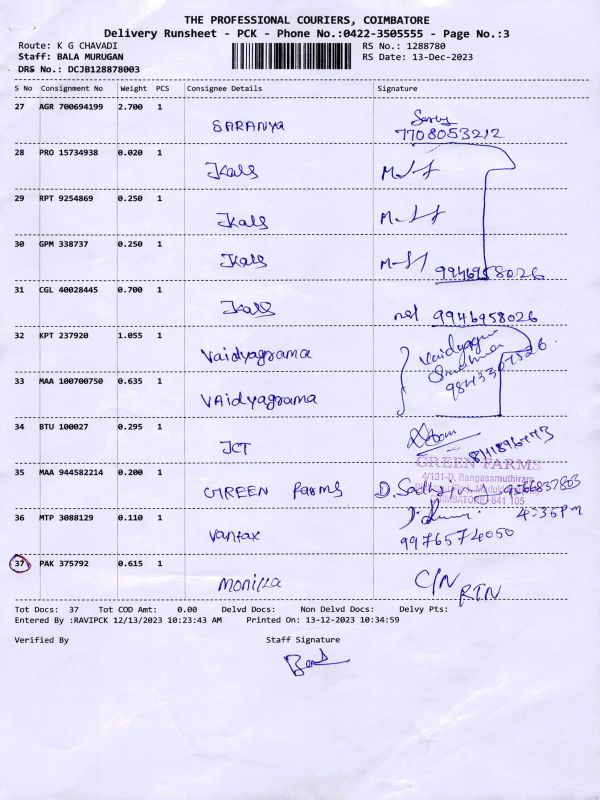 THE PROFESSIONAL COURIERS, COIMBATORE
Delivery Runsheet - PCK - Phone No.:0422-3505555 - Page No.:3
Route: K G CHAVADI RS No.: 1288780
Staff: BALA MURUGAN RS Date: 13-Dec-2023
DRS No.: DCJB128878003
S No Consignment No Weight PCS Consignee Details Signature
27 AGR 700694199 2.700 1
SARANYA 7708053212
28 PRO 15734938 0.020 1
Kals
29 RPT 9254869 0.250 1
Kals
30 GPM 338737 0.250 1
Kals 9946958026
31 CGL 40028445 0.700 1
Kals 9946958026
32 KPT 237920 1.055 1
Vaidyagrama
33 MAA 100700750 0.635 1
VAidyagrama
34 BTU 100027 0.295 1
JCT
GREEN FARMS
35 MAA 944582214 0.200 1 4/131-D, Rangasamuthiram
GREEN farms 9566837803
COIMBATORE - 641 105
36 MTP 3088129 0.110 1 4:35PM
Vantax 9976574050
37 PAK 375792 0.615 1
monikka C/N RTN
Tot Docs: 37 Tot COD Amt: 0.00 Delvd Docs: Non Delvd Docs: Delvy Pts:
Entered By :RAVIPCK 12/13/2023 10:23:43 AM Printed On: 13-12-2023 10:34:59
Verified By Staff Signature